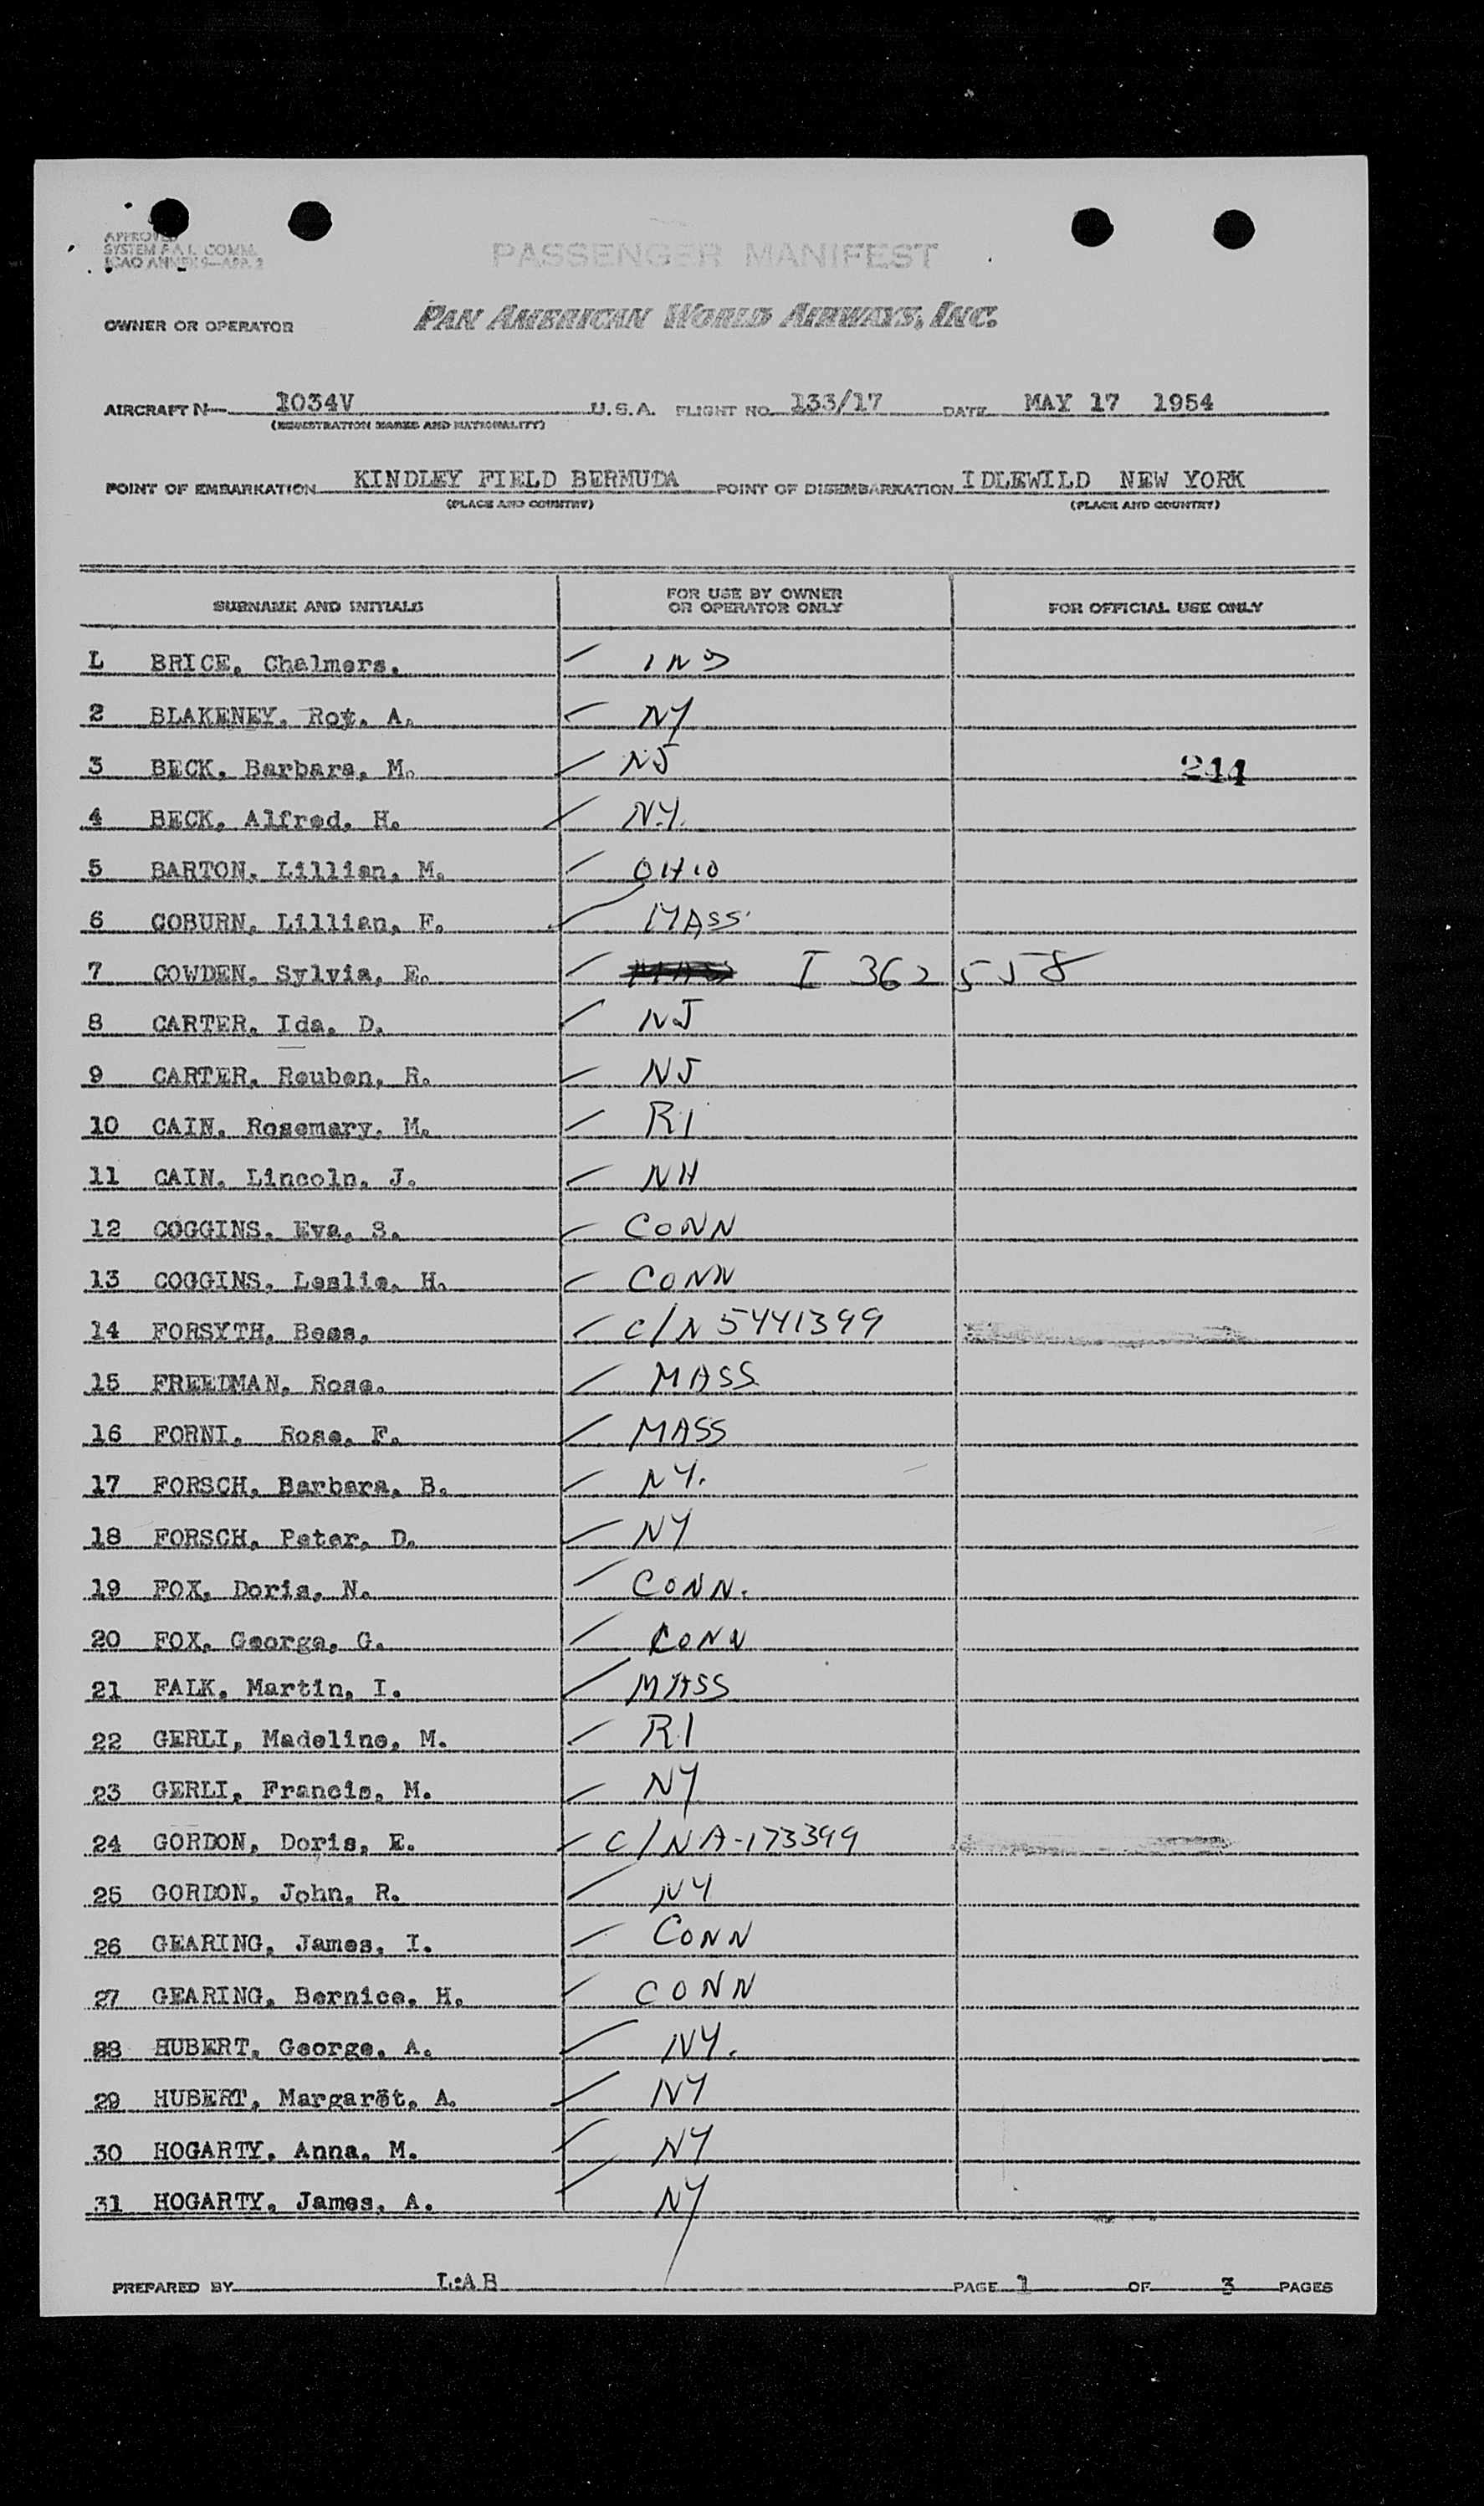 APPROVED
SYSTEM F.A.L. COMM.
ICAO ANNEX 9—APP. 2
PASSENGER MANIFEST
OWNER OR OPERATOR PAN AMERICAN WORLD AIRWAYS, INC.
AIRCRAFT N— 1034V U.S.A. FLIGHT NO. 133/17 DATE MAY 17 1954
(REGISTRATION MARKS AND NATIONALITY)
POINT OF EMBARKATION KINDLEY FIELD BERMUDA POINT OF DISEMBARKATION IDLEWILD NEW YORK
(PLACE AND COUNTRY) (PLACE AND COUNTRY)
SURNAME AND INITIALS FOR USE BY OWNER OR OPERATOR ONLY FOR OFFICIAL USE ONLY
L BRICE, Chalmers. IND
2 BLAKENEY, Roy, A. NY
3 BECK, Barbara, M. NJ 244
4 BECK, Alfred, H. N.Y.
5 BARTON, Lillian, M. OHIO
6 COBURN, Lillian, F. MASS
7 COWDEN, Sylvia, E. MASS I 362558
8 CARTER, Ida, D. NJ
9 CARTER, Reuben, R. NJ
10 CAIN, Rosemary, M. RI
11 CAIN, Lincoln, J. NH
12 COGGINS, Eva, S. CONN
13 COGGINS, Leslie, H. CONN
14 FORSYTH, Bess, C/N 5441399
15 FREEDMAN, Rose. MASS
16 FORNI, Rose, F. MASS
17 FORSCH, Barbara, B. NY.
18 FORSCH, Peter, D. NY
19 FOX, Doris, N. CONN.
20 FOX, George, G. CONN
21 FALK, Martin, I. MASS
22 GERLI, Madeline, M. R.I
23 GERLI, Francis, M. NY
24 GORDON, Doris, E. C/N A-173399
25 GORDON, John, R. NY
26 GEARING, James, I. CONN
27 GEARING, Bernice, H. CONN
28 HUBERT, George, A. NY.
29 HUBERT, Margaret, A. NY
30 HOGARTY, Anna, M. NY
31 HOGARTY, James, A. NY
PREPARED BY L:AB PAGE 1 OF 3 PAGES